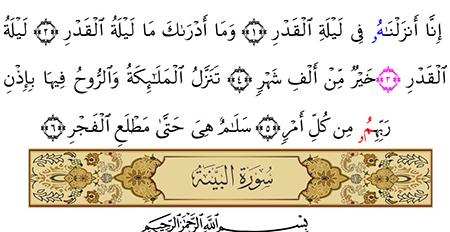 إِنَّا أَنزَلْنَٰهُۥ فِى لَيْلَةِ ٱلْقَدْرِ ﴿١﴾ وَمَا أَدْرَىٰكَ مَا لَيْلَةُ ٱلْقَدْرِ ﴿٢﴾ لَيْلَةُ
ٱلْقَدْرِ ﴿٣﴾ خَيْرٌ مِّنْ أَلْفِ شَهْرٍ ﴿٤﴾ تَنَزَّلُ ٱلْمَلَٰٓئِكَةُ وَٱلرُّوحُ فِيهَا بِإِذْنِ
رَبِّهِمُۥ مِن كُلِّ أَمْرٍ ﴿٥﴾ سَلَٰمٌ هِىَ حَتَّىٰ مَطْلَعِ ٱلْفَجْرِ ﴿٦﴾
سُورَةُ البَيِّنَةِ
بِسْمِ ٱللَّهِ ٱلرَّحْمَٰنِ ٱلرَّحِيمِ